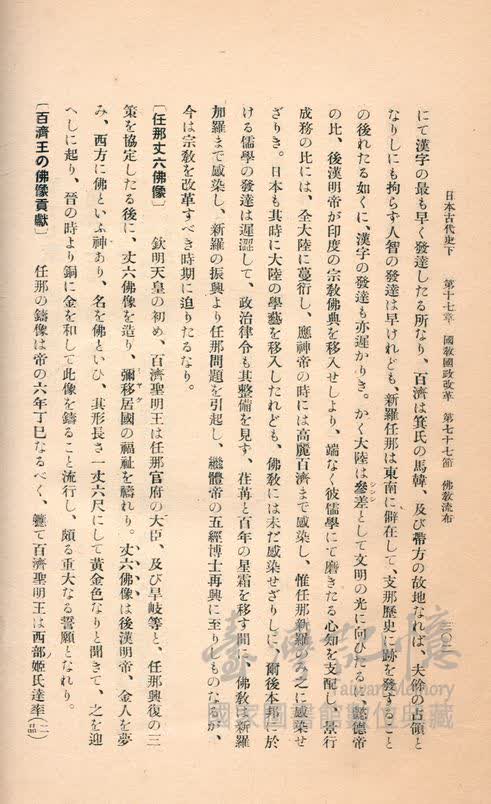 日本古代史下　第十七章　國敎國政改革　第七十七節　佛敎流布　三〇二
にて漢字の最も早く發達したる所なり、百濟は箕氏の馬韓、及び帶方の故地なれば、大倭の占領と
なりしにも拘らず人智の發達は早けれども、新羅任那は東南に僻在して、支那歷史に跡を發すること
の後れたる如くに、漢字の發達も亦遲かりき。かく大陸は參差として文明の光に向ひたるに、懿德帝
の比、後漢明帝が印度の宗敎佛典を移入せしより、端なく彼儒學にて磨きたる心知を支配し、景行
成務の比には、全大陸に蔓衍し、應神帝の時には高麗百濟まで感染し、惟任那新羅のみ之に感染せ
ざりき。日本も其時に大陸の學藝を移入したれども、佛敎には未だ感染せざりしに、爾後本邦に於
ける儒學の發達は遲澀して、政治律令も其整備を見ず、荏苒と百年の星霜を移す間に、佛敎は新羅
加羅まで感染し、新羅の振興より任那問題を引起し、繼體帝の五經博士再興に至りしものなるが、
今は宗敎を改革すべき時期に迫りたるなり。
〔任那丈六佛像〕　欽明天皇の初め、百濟聖明王は任那官府の大臣、及び旱岐等と、任那興復の三
策を協定したる後に、丈六佛像を造り、彌移居國の福祉を禱れり。丈六佛像は後漢明帝、金人を夢
み、西方に佛といふ神あり、名を佛といひ、其形長さ一丈六尺にして黄金色なりと聞きて、之を迎
へしに起り、晉の時より銅に金を和して此像を鑄ること流行し、頗る重大なる誓願となれり。
〔百濟王の佛像貢獻〕　任那の鑄像は帝の六年丁巳なるべく、軈て百濟聖明王は西部姬氏達率(二品)
臺灣記憶
Taiwan Memory
國家圖書館數位典藏